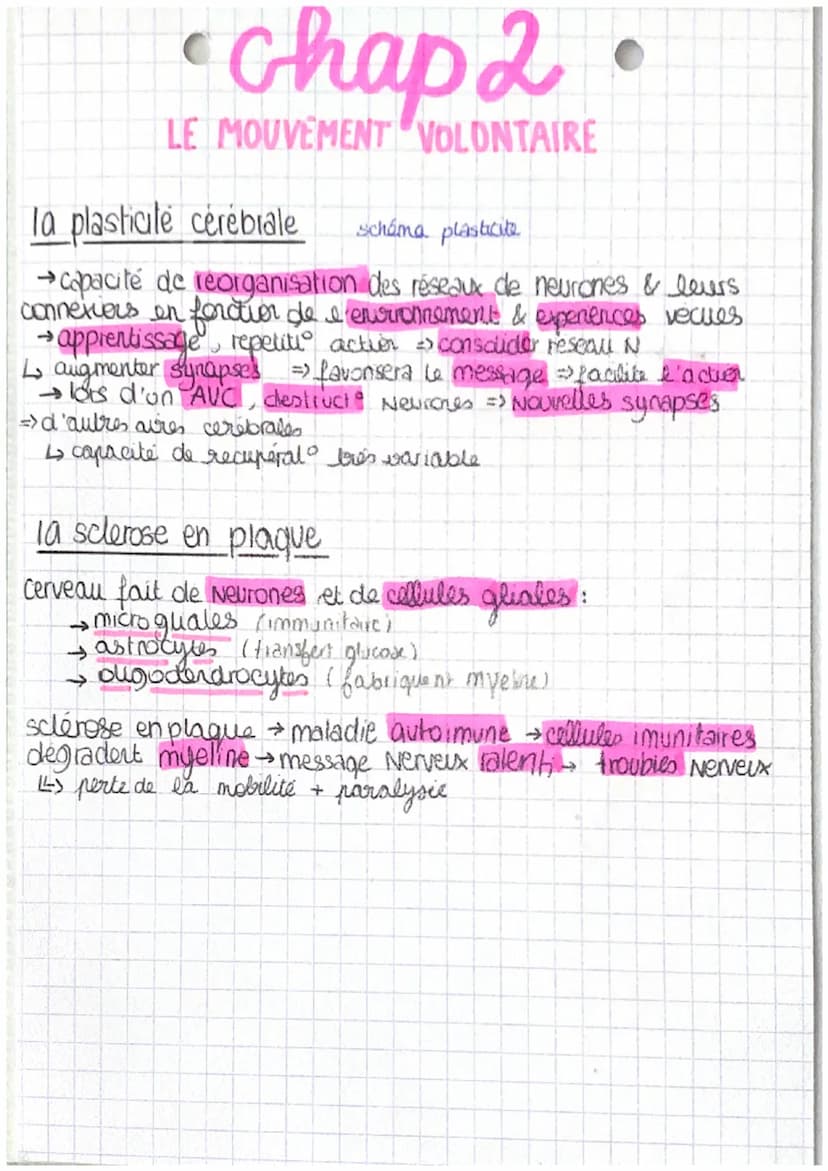 Chap 2
LE MOUVEMENT VOLONTAIRE
la plasticité cérébrale schéma plasticite
→ capacité de réorganisation des réseaux de neurones & leurs
connexions en fonction de l'environnement & experiences vecues
→ apprentissage, repetit° action ⇒ consolider réseau N
↳ augmenter synapses ⇒ favorisera le message ⇒ facilite l'action
→ lors d'un AVC, destruct° Neurones ⇒ Nouvelles synapses
⇒ d'autres aires cerébrales
↳ capacité de recupérat° très variable
la sclerose en plaque
cerveau fait de Neurones et de cellules gliales :
→ microgliales (immunitaire)
→ astrocytes (transfert glucose)
→ oligodendrocytes (fabriquent myeline)
sclérose en plaque → maladie autoimune → cellules imunitaires
dégradent myeline → message Nerveux ralenti → troubles Nerveux
↳ perte de la mobilité + paralysie